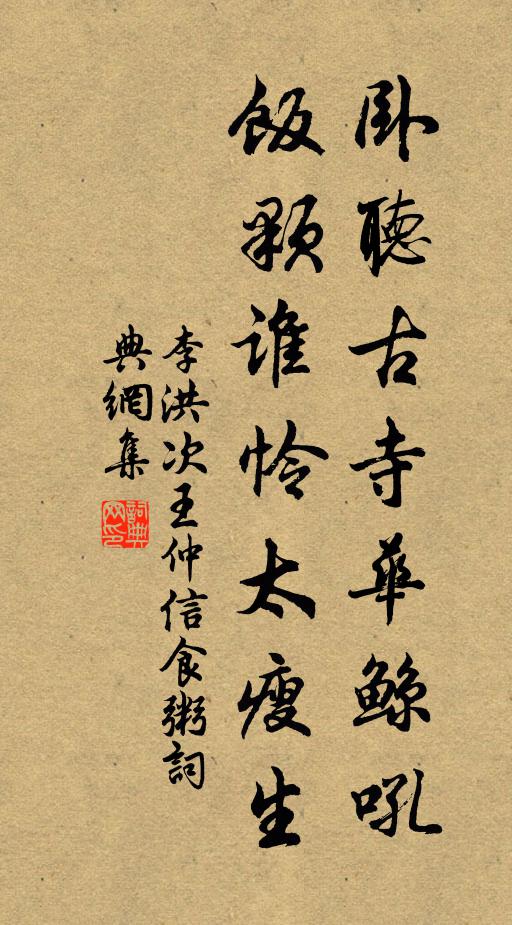 卧聽古寺華鯨吼
飯顆誰憐太瘦生
李洪次王仲信食粥詞
典網集
詞典
网印